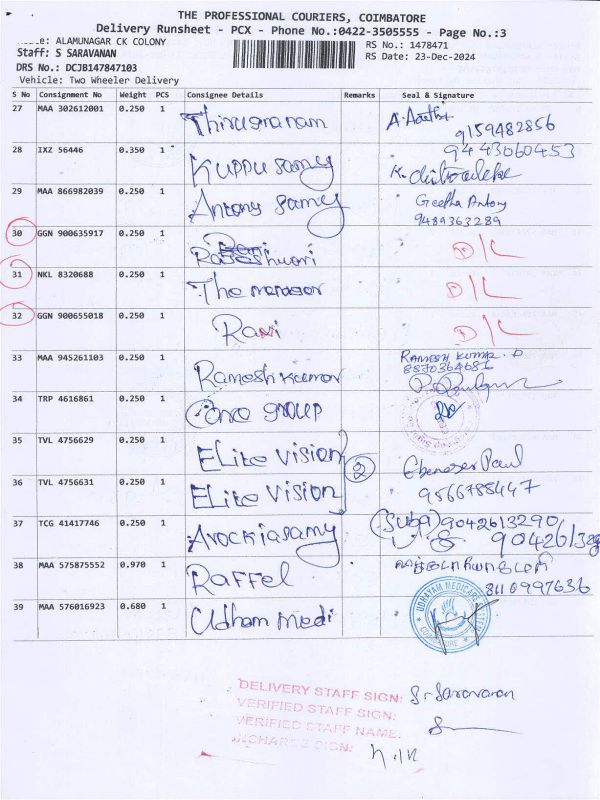 THE PROFESSIONAL COURIERS, COIMBATORE
Delivery Runsheet - PCX - Phone No.:0422-3505555 - Page No.:3
ALAMUNAGAR CK COLONY
RS No.: 1478471
Staff: S SARAVANAN
RS Date: 23-Dec-2024
DRS No.: DCJB147847103
Vehicle: Two Wheeler Delivery
S No Consignment No Weight PCS Consignee Details Remarks Seal & Signature
27 MAA 302612001 0.250 1 Thirugnanam A. Aarthi
9159482856
28 IXZ 56446 0.350 1 Kuppusamy 9443060453
K.
29 MAA 866982039 0.250 1 Antony Samy Geetha Antony
9489363289
30 GGN 900635917 0.250 1 Rajeshwari D/L
31 NKL 8320688 0.250 1 The manager D/L
32 GGN 900655018 0.250 1 Ravi D/L
33 MAA 945261103 0.250 1 Ramesh Kumar RAMESH KUMAR. P
8870364681
34 TRP 4616861 0.250 1 group
35 TVL 4756629 0.250 1 ELite vision
36 TVL 4756631 0.250 1 ELite vision 2 Ebenezer Paul
9566788447
37 TCG 41417746 0.250 1 Arockiasamy (Suba) 9042613290
38 MAA 575875552 0.970 1 Raffel
8110997636
39 MAA 576016923 0.680 1 Udham Medi
UDHAYAM MEDICARE
COIMBATORE
DELIVERY STAFF SIGN: S. Saravanan
VERIFIED STAFF SIGN:
VERIFIED STAFF NAME:
INCHARGE SIGN: